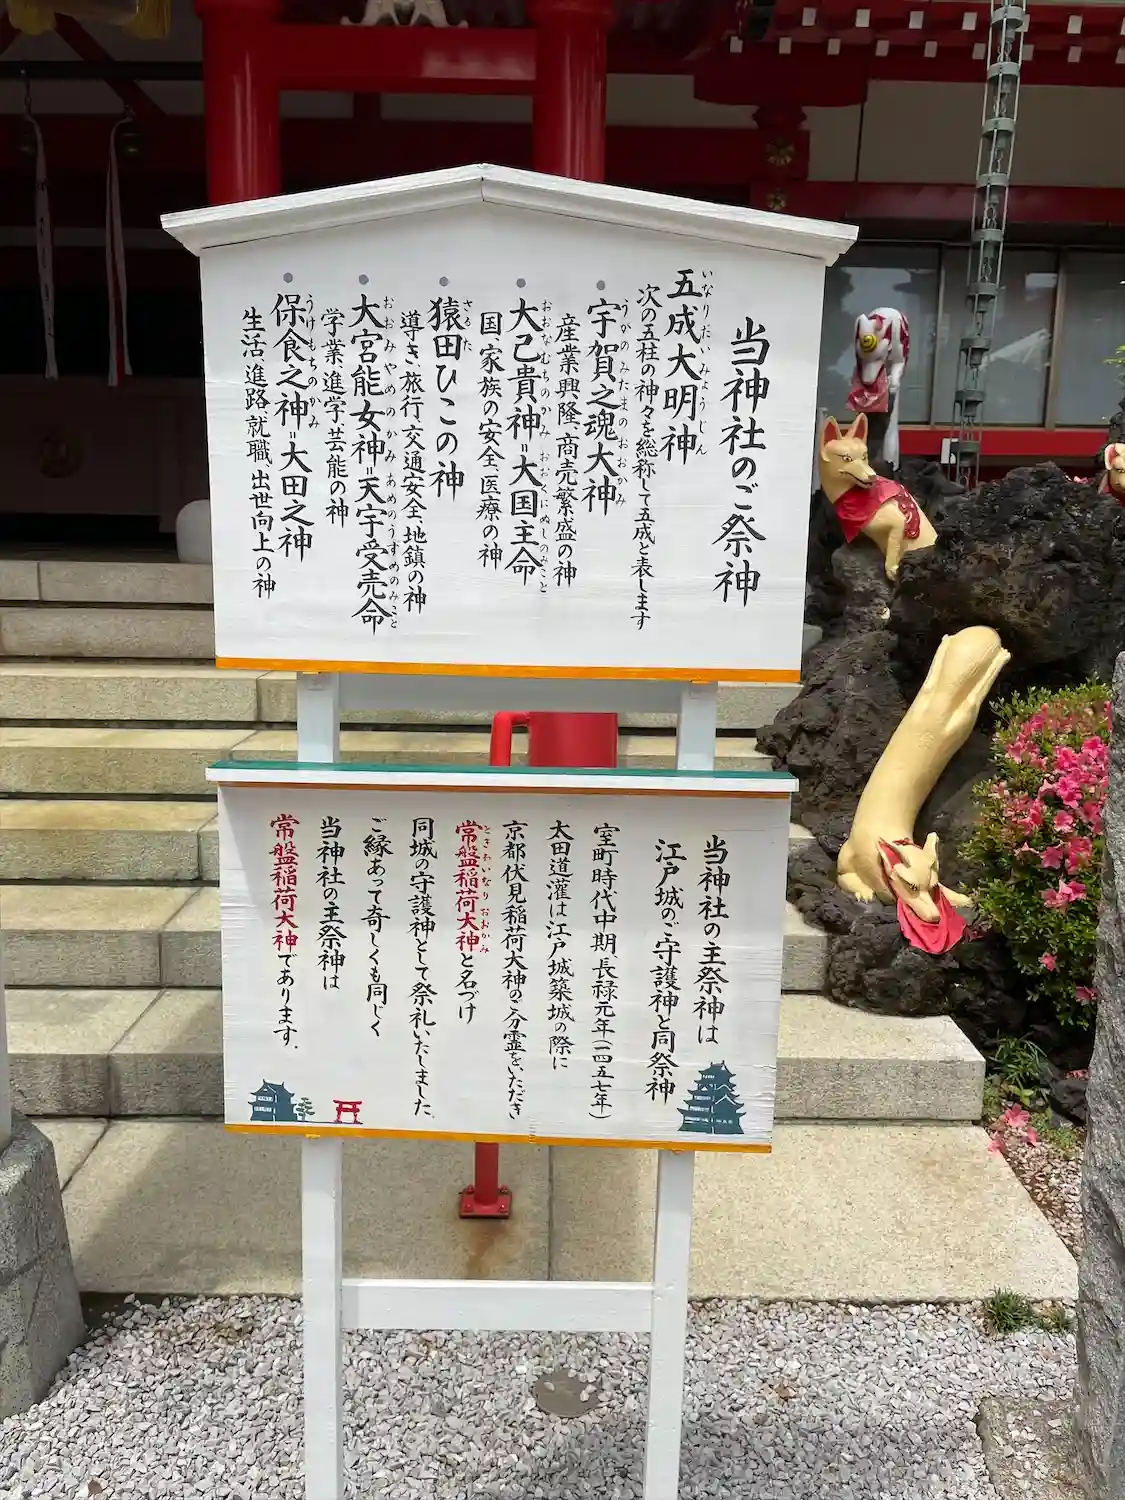 当神社のご祭神
五成大明神
いなりだいみょうじん
次の五柱の神々を総称して五成と表します
宇賀之魂大神
うかのみたまのおおかみ
産業興隆、商売繁盛の神
大己貴神=大国主命
おおなむちのかみ おおくにぬしのみこと
国、家族の安全、医療の神
猿田ひこの神
さるた
導き、旅行、交通安全、地鎮の神
大宮能女神=天宇受売命
おおみやめのかみ あめのうずめのみこと
学業、進学、芸能の神
保食之神=大田之神
うけもちのかみ
生活、進路、就職、出世向上の神
当神社の主祭神は
江戸城のご守護神と同祭神
室町時代中期、長禄元年(一四五七年)
太田道灌は江戸城築城の際に
京都伏見稲荷大神のご分霊をいただき
常盤稲荷大神と名づけ
ときわいなり おおかみ
同城の守護神として祭礼いたしました。
ご縁あって奇しくも同じく
当神社の主祭神は
常盤稲荷大神であります。